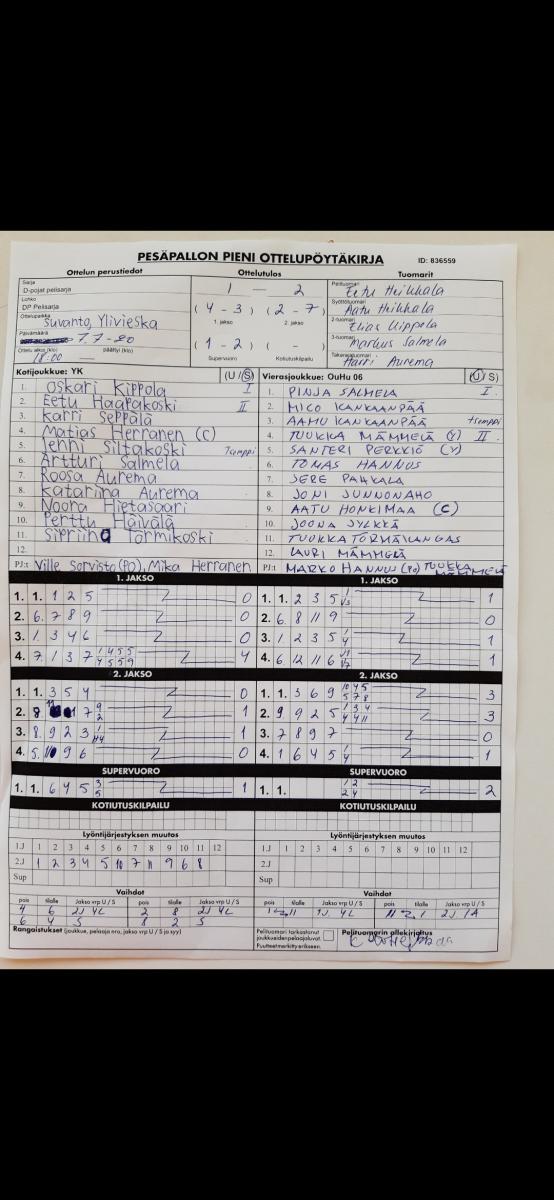 PESÄPALLON PIENI OTTELUPÖYTÄKIRJA ID: 836559
Ottelun perustiedot Ottelutulos Tuomarit
Sarja
D-pojat pelisarja
Lohko
DP Pelisarja
Ottelupaikka
Suvanto, Ylivieska
Päivämäärä
7.7-20
Ottelu alkoi (klo) päättyi (klo)
18:00
1 — 2
(4 - 3) (2 - 7)
1. jakso 2. jakso
(1 - 2) ( - )
Supervuoro Kotiutuskilpailu
Pelituomari
Eetu Heikkala
Syöttötuomari
Aatu Heikkala
2-tuomari
Elias Kippola
3-tuomari
Markus Salmela
Takarajatuomari
Harri Aurema
Kotijoukkue: YK (U/S)
1. Oskari Kippola I
2. Eetu Haapakoski II
3. Karri Seppälä
4. Matias Herranen (C)
5. Jenni Siltakoski
6. Artturi Salmela
7. Roosa Aurema
8. Katariina Aurema
9. Noora Hietasaari
10. Perttu Häivälä
11. Törmikoski
12.
PJ:t Ville Sorvisto (PO), Mika Herranen
Vierasjoukkue: OuHu 06 (U/S)
1. PINJA SALMELA I
2. MICO KANKAANPÄÄ
3. AAMU KANKAANPÄÄ
4. TUUKKA MÄMMELÄ (Y) II
5. SANTERI PERKKIÖ (Y)
6. TOMAS HANNUS
7. JERE PAHKALA
8. JONI JUNNONAHO
9. AATU HONKIMAA (C)
10. JOONA JYLKKÄ
11. TUUKKA TÖRMÄKANGAS
12. LAURI MÄMMELÄ
PJ:t MARKO HANNUS (PO) TUUKKA MÄMMELÄ
1. JAKSO 1. JAKSO
1. 1. 1 2 5 0 1. 1. 2 3 5 1
2. 6. 7 8 9 0 2. 6. 8 11 9 0
3. 1. 3 4 6 0 3. 1 2 3 5 1
4. 7. 1 3 7 4 4. 6 12 11 6 1
2. JAKSO 2. JAKSO
1. 1. 3 5 4 0 1. 1. 3 6 9 3
2. 8 7 1 2. 9 9 2 5 3
3. 8. 9 2 3 1 3. 7 8 9 7 0
4. 5. 10 9 6 0 4. 1 6 4 5 1
SUPERVUORO SUPERVUORO
1. 1. 6 4 5 1 1. 1. 2
KOTIUTUSKILPAILU KOTIUTUSKILPAILU
Lyöntijärjestyksen muutos Lyöntijärjestyksen muutos
1.J 1 2 3 4 5 6 7 8 9 10 11 12 1.J 1 2 3 4 5 6 7 8 9 10 11 12
2.J 1 2 3 4 5 10 7 11 9 6 8 2.J
Sup Sup
Vaihdot Vaihdot
pois tilalle Jakso vrp U / S pois tilalle Jakso vrp U / S pois tilalle Jakso vrp U / S pois tilalle Jakso vrp U / S
4 6 2J 4L 2 8 2J 4L 1J 4L 2J 1A
6 4 S 8 2 S
Rangaistukset (joukkue, pelaaja nro, jakso vrp U / S ja syy)
Pelituomari tarkastanut
joukkueidenpelaajaluvat.
Puutteetmerkittyerikseen.
Pelituomarin allekirjoitus